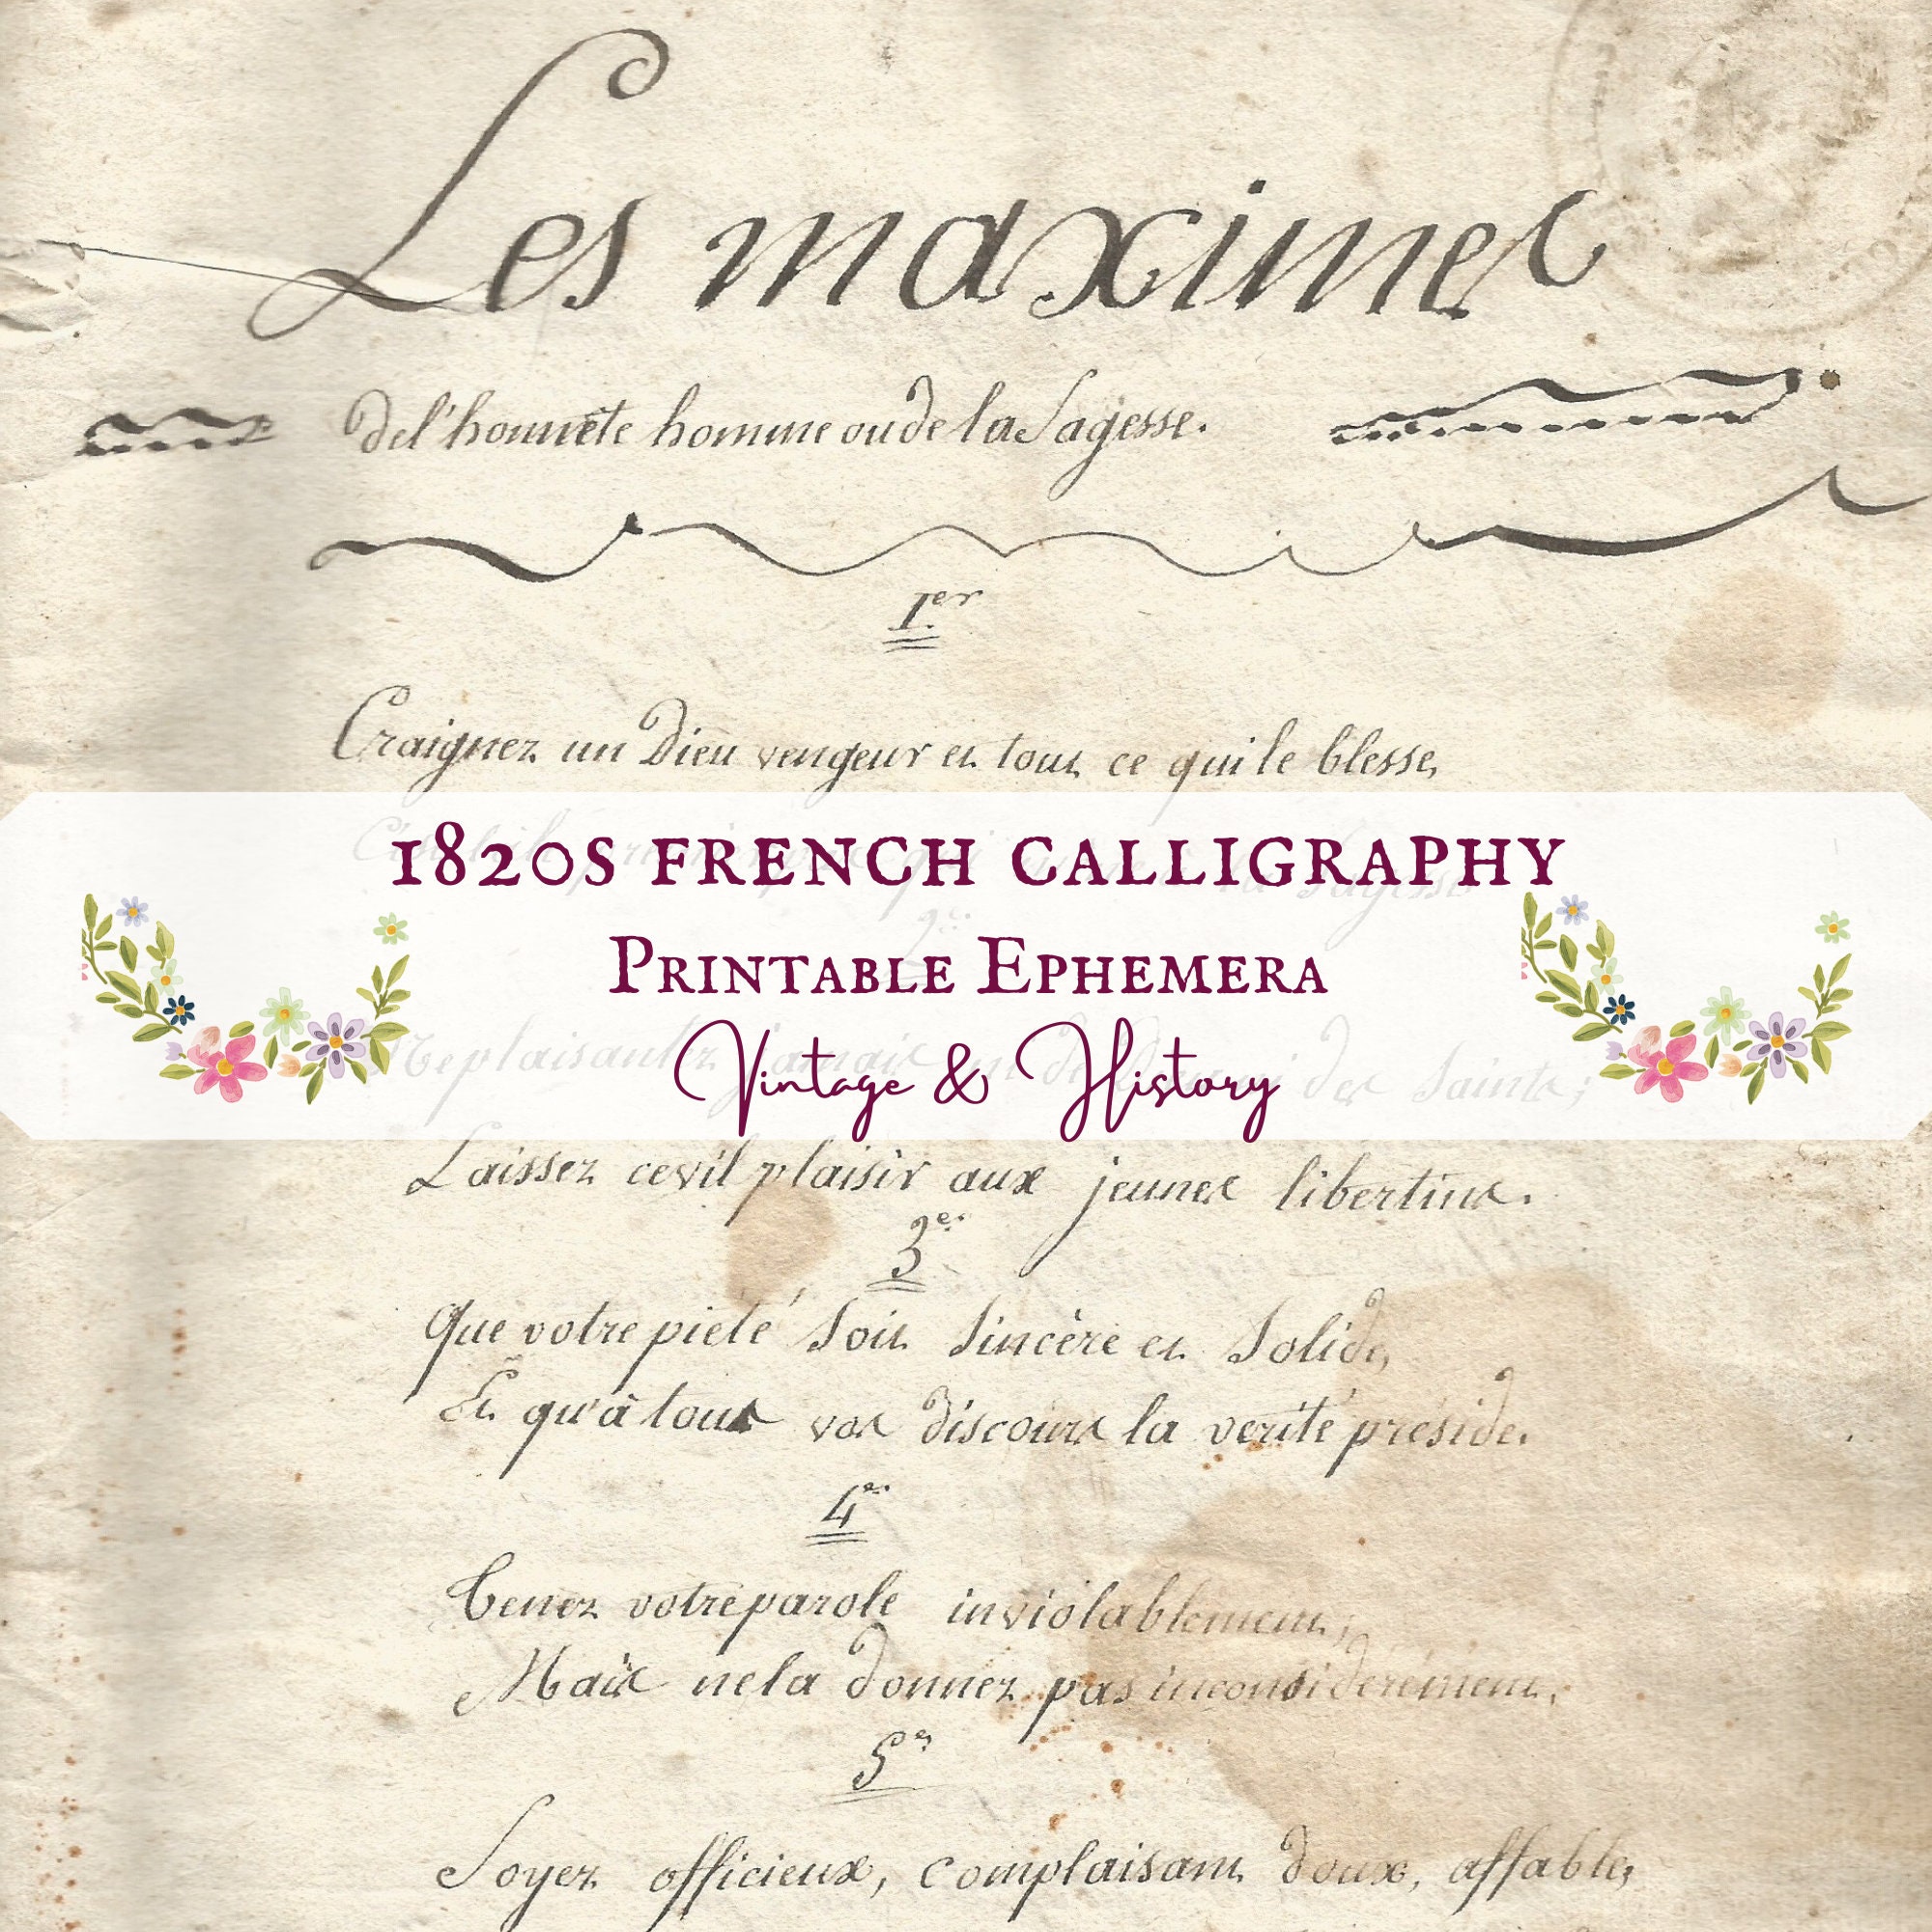 Les maximes
de l'honnête homme ou de la Sagesse.
1er
Craignez un Dieu vengeur et tout ce qui le blesse,
1820s French Calligraphy
Printable Ephemera
Neplaisantez jamais ni de Dieu ni des Saints;
Vintage & History
Laissez ce vil plaisir aux jeunes libertins.
3e.
Que votre piété soit sincère et Solide,
Et qu'à tous vos discours la verité préside.
4e.
Tenez votre parole inviolablement,
Mais ne la donnez pas inconsiderément.
5e
Soyez officieux, complaisant doux, affable,